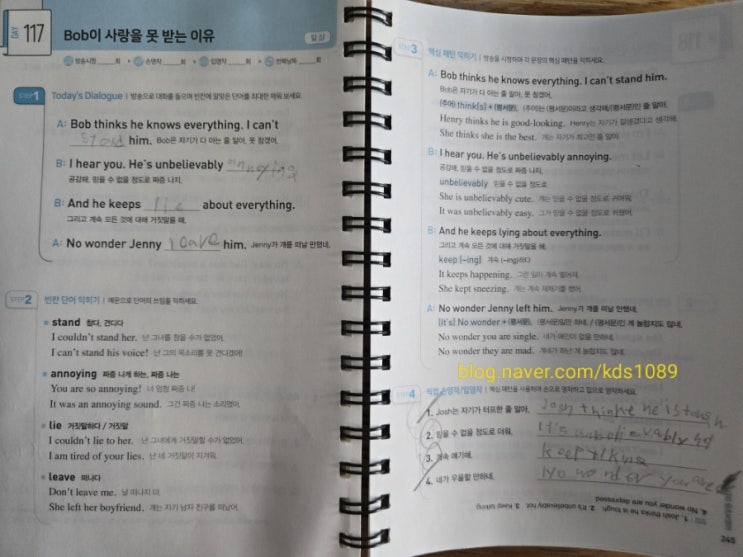 117
Bob이 사랑을 못 받는 이유
일상
방송시청 회 손영작 회 입영작 회 반복낭독 회
STEP 1
Today's Dialogue | 방송으로 대화를 들으며 빈칸에 알맞은 단어를 최대한 채워 보세요.
A: Bob thinks he knows everything. I can't
stad him. Bob은 자기가 다 아는 줄 알아. 못 참겠어.
B: I hear you. He's unbelievably annoying
공감해. 믿을 수 없을 정도로 짜증 나지.
B: And he keeps lie about everything.
그리고 계속 모든 것에 대해 거짓말을 해.
A: No wonder Jenny leave him. Jenny가 걔를 떠날 만했네.
STEP 2
빈칸 단어 익히기 | 예문으로 단어의 쓰임을 익히세요.
stand 참다, 견디다
I couldn't stand her. 난 그녀를 참을 수가 없었어.
I can't stand his voice! 난 그의 목소리를 못 견디겠어!
annoying 짜증 나게 하는, 짜증 나는
You are so annoying! 너 엄청 짜증 나!
It was an annoying sound. 그건 짜증 나는 소리였어.
lie 거짓말하다 / 거짓말
I couldn't lie to her. 난 그녀에게 거짓말할 수가 없었어.
I am tired of your lies. 난 네 거짓말이 지겨워.
leave 떠나다
Don't leave me. 날 떠나지 마.
She left her boyfriend. 걔는 자기 남자 친구를 떠났어.
STEP 3
핵심 패턴 익히기 | 방송을 시청하며 각 문장의 핵심 패턴을 익히세요.
A: Bob thinks he knows everything. I can't stand him.
Bob은 자기가 다 아는 줄 알아. 못 참겠어.
(주어) think[s] + (평서문). (주어)는 (평서문)이라고 생각해/(평서문)인 줄 알아.
Henry thinks he is good-looking. Henry는 자기가 잘생겼다고 생각해.
She thinks she is the best. 걔는 자기가 최고인 줄 알아.
B: I hear you. He's unbelievably annoying.
공감해. 믿을 수 없을 정도로 짜증 나지.
unbelievably 믿을 수 없을 정도로
She is unbelievably cute. 걔는 믿을 수 없을 정도로 귀여워.
It was unbelievably easy. 그거 믿을 수 없을 정도로 쉬웠어.
B: And he keeps lying about everything.
그리고 계속 모든 것에 대해 거짓말을 해.
keep (-ing) 계속 (-ing)하다
It keeps happening. 그런 일이 계속 벌어져.
She kept sneezing. 걔는 계속 재채기를 했어.
A: No wonder Jenny left him. Jenny가 걔를 떠날 만했네.
[It's] No wonder + (평서문). (평서문)일만 하네. / (평서문)인 게 놀랍지도 않네.
No wonder you are single. 네가 애인이 없을 만하네.
No wonder they are mad. 걔네가 화난 게 놀랍지도 않네.
blog.naver.com/kds1089
STEP 4
직접 손영작/입영작 | 핵심 패턴을 사용하여 손으로 영작하고 입으로 영작하세요.
1. Josh는 자기가 터프한 줄 알아.
Josh thinke he is tough
2. 믿을 수 없을 정도로 더워.
It's unbelievably hot
3. 계속 얘기해.
keep talking
4. 네가 우울할 만하네.
No wonder you are
1. Josh thinks he is tough. 2. It's unbelievably hot. 3. Keep talking.
4. No wonder you are depressed.
245